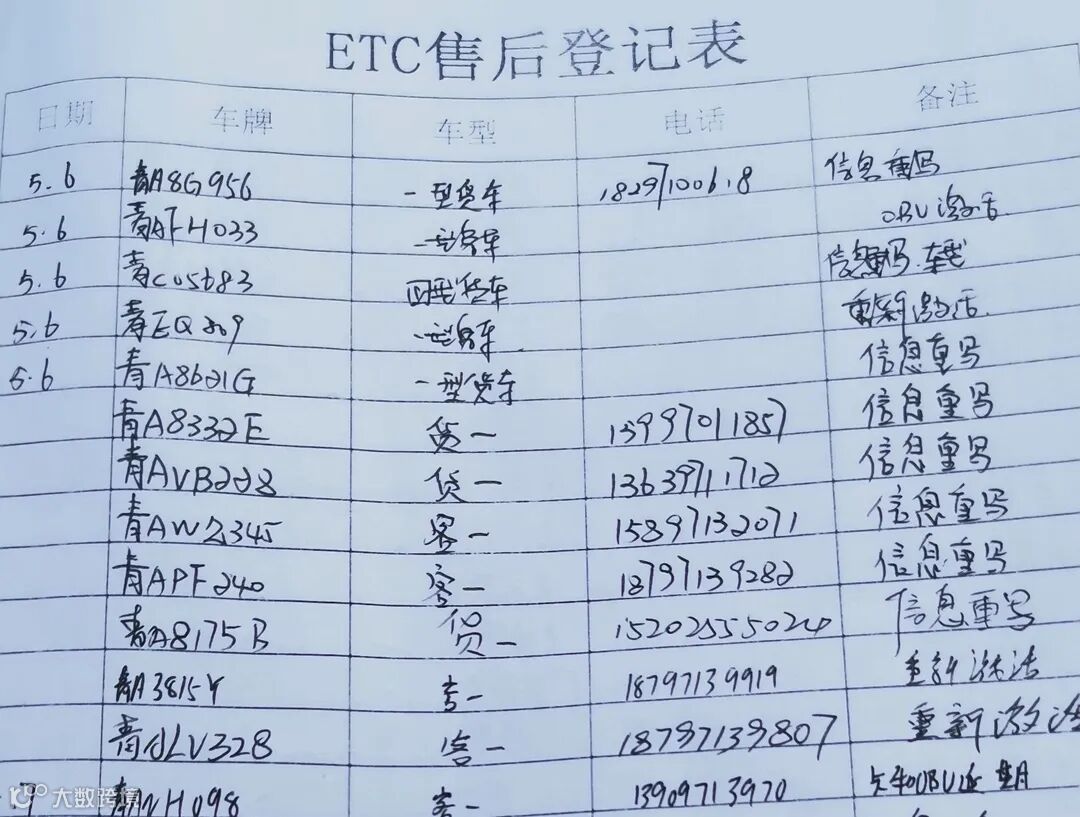 ETC售后登记表
日期 车牌 车型 电话 备注
5.6 青A8G956 一型货车 18297100618 信息重写
5.6 青AFH033 一型客车 OBU激活
5.6 青C05683 四型货车 信息重写.车型
5.6 青EQ209 一型客车 重新激活
5.6 青A8621G 一型货车 信息重写
青A8332E 货一 15997011857 信息重写
青AVB228 货一 13639711712 信息重写
青AW2345 客一 15897132071 信息重写
青APF240 客一 18797139282 信息重写
青A8175B 货一 15202555024 信息重写
青A3815Y 客一 18797139919 重新激活
青 LV328 客一 18797139807 重新激活
H098 客一 13909713970 OBU
大数跨境